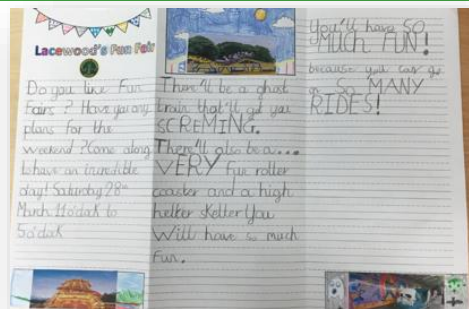 Lacewood's Fun Fair
Do you like Fun
Fairs? Have you any
plans for the
weekend? Come along
to have an incredible
day! Saturday 28th
March 11o'clock to
5o'clock
There'll be a ghost
train that'll get you
SCREMING.
There'll also be a...
VERY fun roller
coaster and a high
helter skelter You
Will have so much
Fun.
You'll have SO
MUCH FUN!
because you can go
on SO MANY
RIDES!